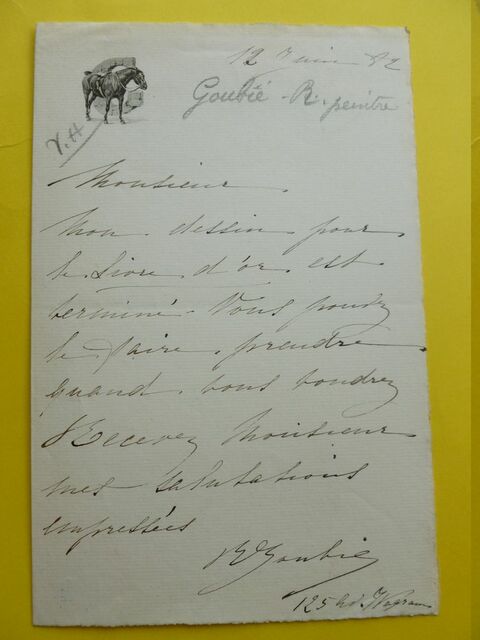 12 Juin 82
Goubié - R. peintre
V.A
Monsieur
Mon dessin pour
le Livre d'or est
terminé. Vous pouvez
le faire prendre
quand vous voudrez
Recevez Monsieur
mes salutations
empressées
R Goubie
125 bd. Wagram